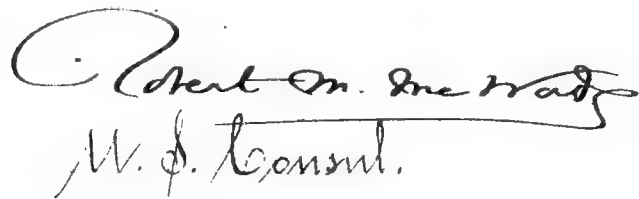 Robert M. McWade
U. S. Consul.